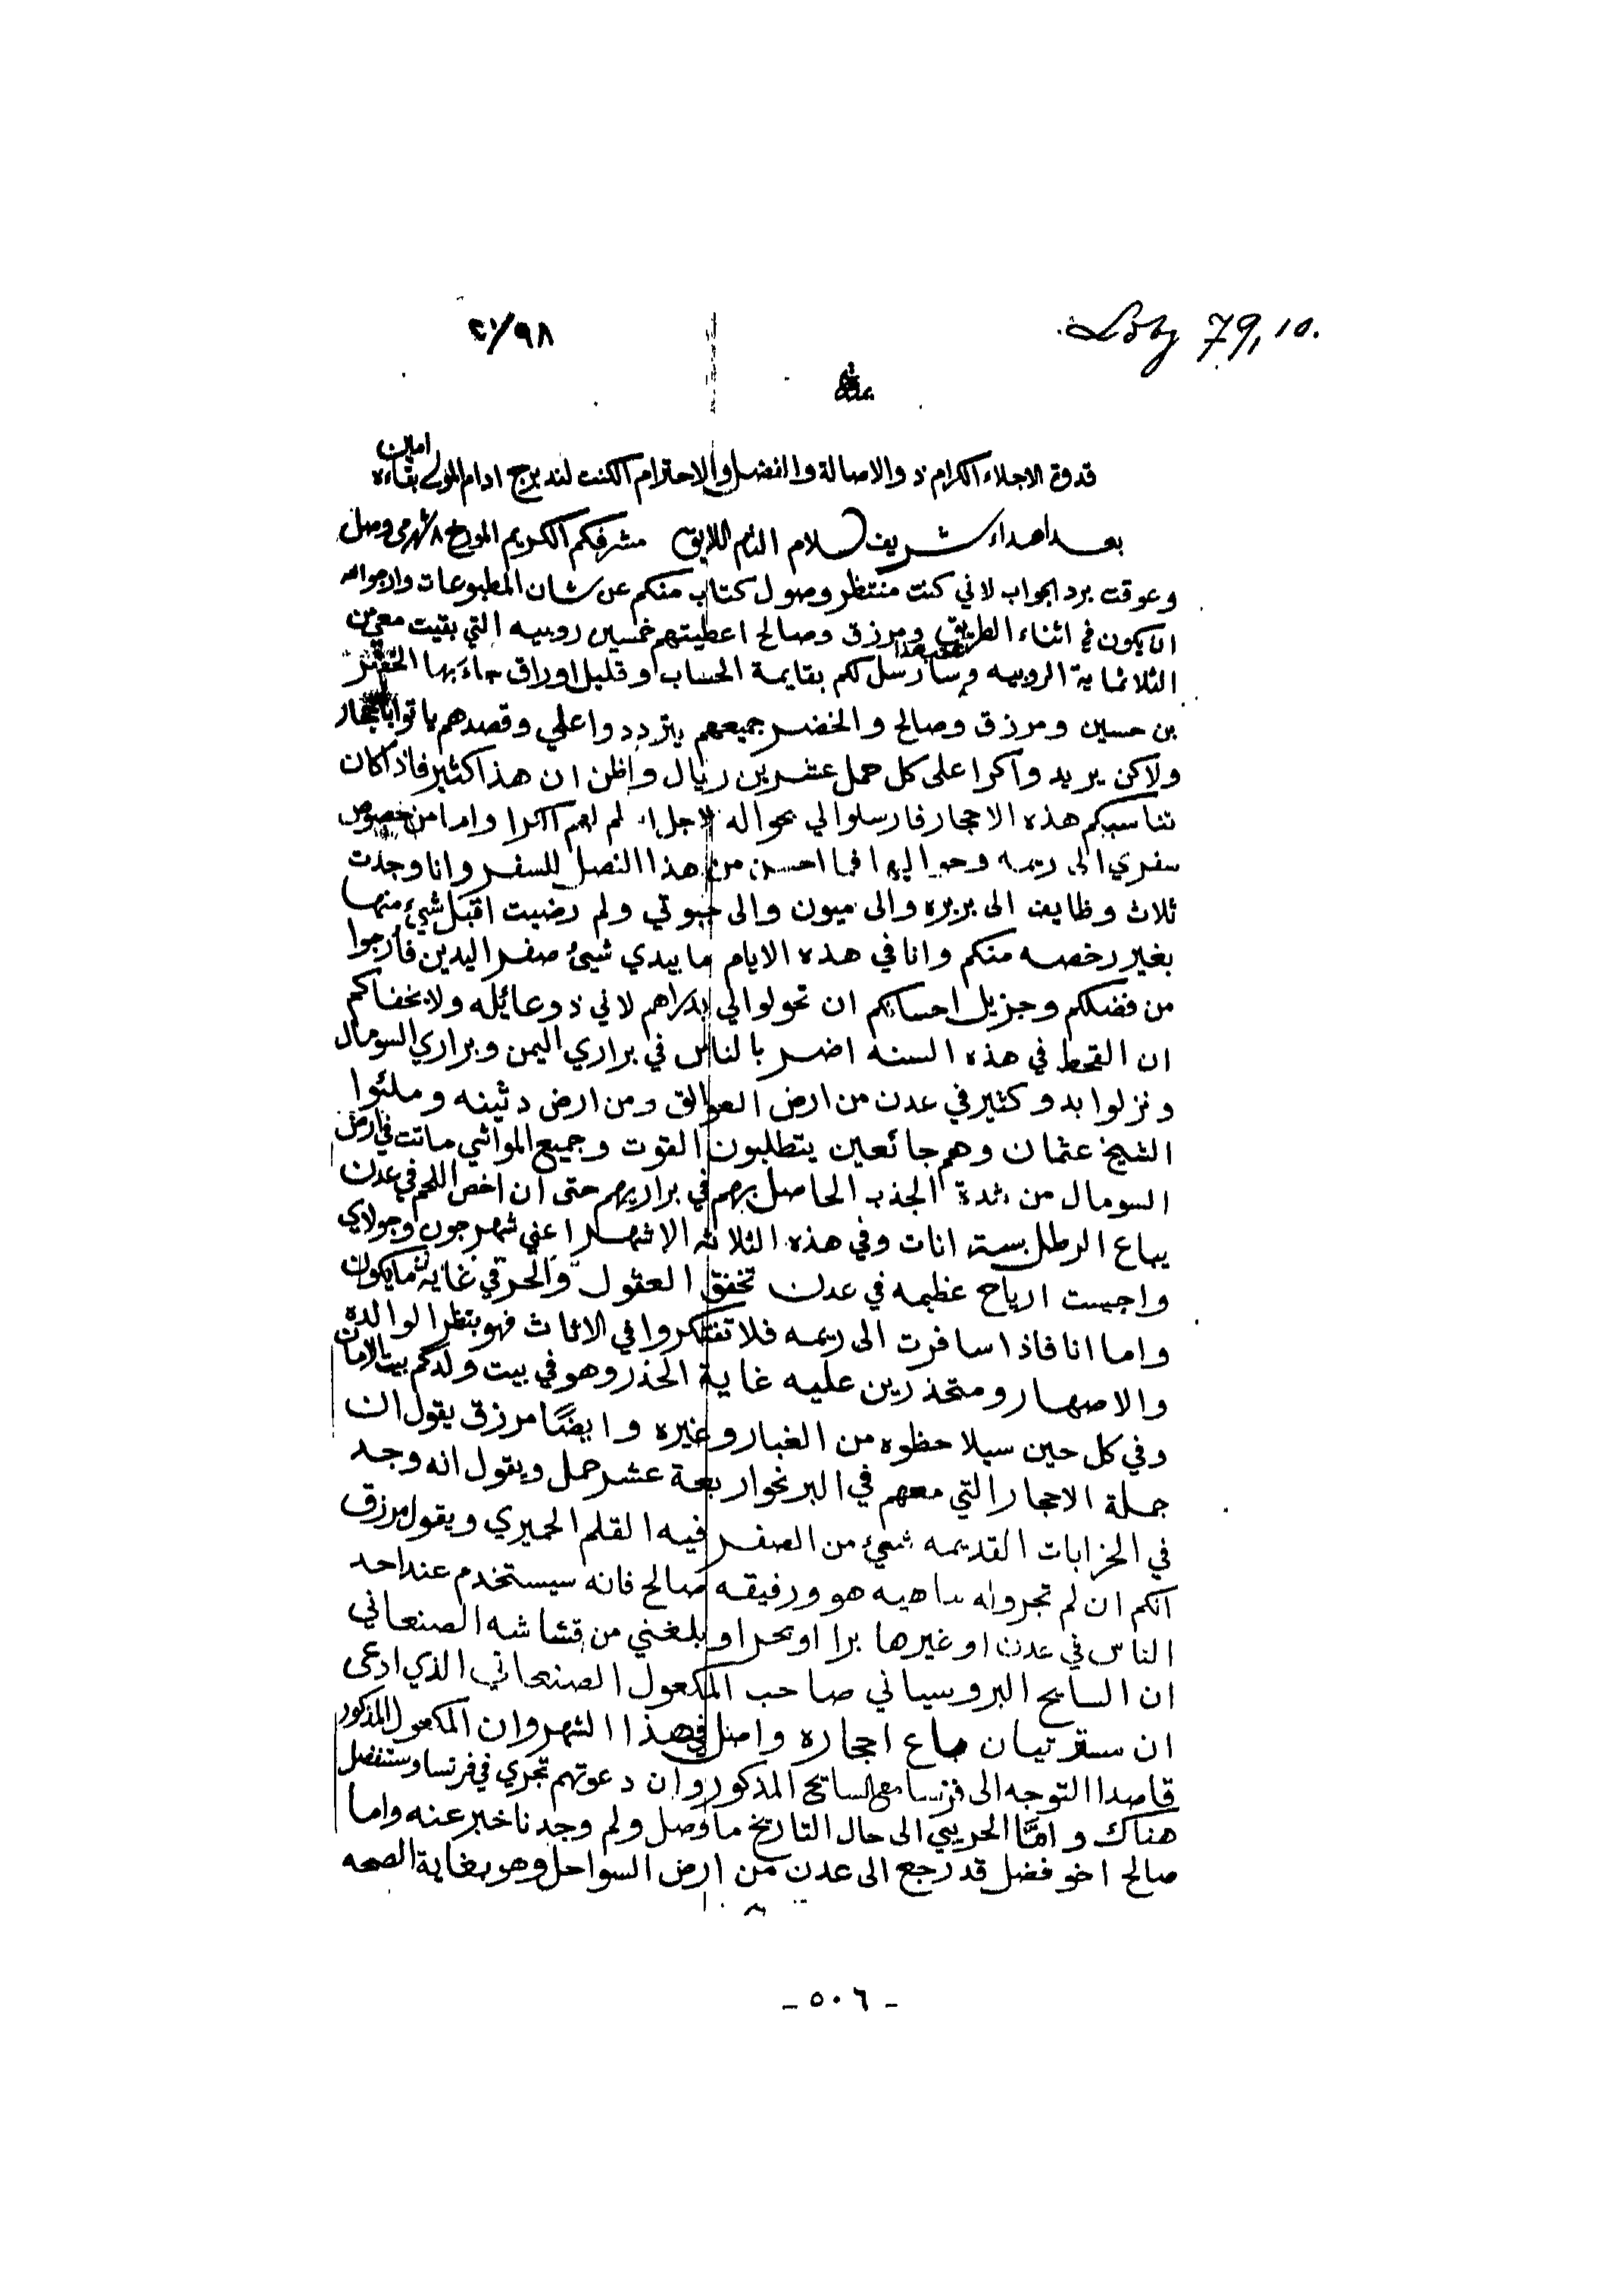 79, 10.
٢٧/٩٨
قدوة الاجلاء الكرام ذو الاصالة والفضل والاحترام الكنت لندبرج ادام المولى بقاءه امين
بعد اهداء شريف سلام التام اللايق مشرفكم الكريم المورخ ٨ شهر مي وصل
وعوقت برد الجواب لاني كنت منتظر وصول كتاب منكم عن شان المطبوعات وارجوا انه
الا يكون في اثناء الطريق ومرزق وصالح اعطيتهم خمسين روبيه التي بقيت معي من
الثلاثماية الروبيه وسارسل لكم بقايمة الحساب وقليل اوراق جاء بها الخضر
بن حسين ومرزق وصالح والخضر جميعهم يترددوا علي وقصدهم ياتوا باحجار
ولاكن يريدوا كرا على كل حمل عشرين ريال واظن ان هذا كثير فاذا كان
تناسبكم هذه الاحجار فارسلوا لي بحواله لاجل الكرا واما من خصوص
سفري الى ريمه وحواليها فما احسن من هذا الفصل للسفر وانا وجدت
ثلاث وظايف الى بربره والى ميون والى جبوتي ولم رضيت اقبل شيء منها
بغير رخصه منكم وانا في هذه الايام ما بيدي شيئ صفر اليدين فارجوا
من فضلكم وجزيل احسانكم ان تحولوا لي بدراهم لاني ذو عائله ولا يخفاكم
ان القحط في هذه السنه اضر بالناس في براري اليمن وبراري السومال
ونزلوا بدو كثير في عدن من ارض العوالق ومن ارض دثينه وملئوا
الشيخ عثمان وهم جائعين يتطلبون القوت وجميع المواشي ماتت في ارض
السومال من شدة الجذب الحاصل بهم في براريهم حتى ان اخص اللحم في عدن
يباع الرطل بستة انات وفي هذه الثلاثه الاشهر اعني شهر جون وجولاي
واجست ارياح عظيمه في عدن تخفق العقول والحر في غاية ما يكون
واما انا فاذا سافرت الى ريمه فلا تفتكروا في الاثاث فهو بنظر الوالده
والاصهار ومتحذرين عليه غاية الحذر وهو في بيت ولدكم بيت الامان
وفي كل حين سيلاحظوه من الغبار وغيره وايضًا مرزق يقول ان
جملة الاحجار التي معهم في البر نحو اربعة عشر حمل ويقول انه وجد
في الخرابات القديمه شيئ من الصفر فيه القلم الحميري ويقول مرزق
انكم ان لم تجروا له ماهيه هو ورفيقه صالح فانه سيستخدم عند احد
الناس في عدن او غيرها برا او بحرا وبلغني من قشاشه الصنعاني
ان السايح البروسياني صاحب المكعول الصنعاني الذي ادعى
ان سترتيان باع احجاره واصل في هذا الشهر وان المكعول المذكور
قاصدا التوجه الى فرنسا مع السايح المذكور وان دعوتهم تجري في فرنسا وستفصل
هناك وامّا الحريبي الى حال التاريخ ما وصل ولم وجدنا خبر عنه واما
صالح اخو فضل قد رجع الى عدن من ارض السواحل وهو بغاية الصحه
- ٥٠٦ -